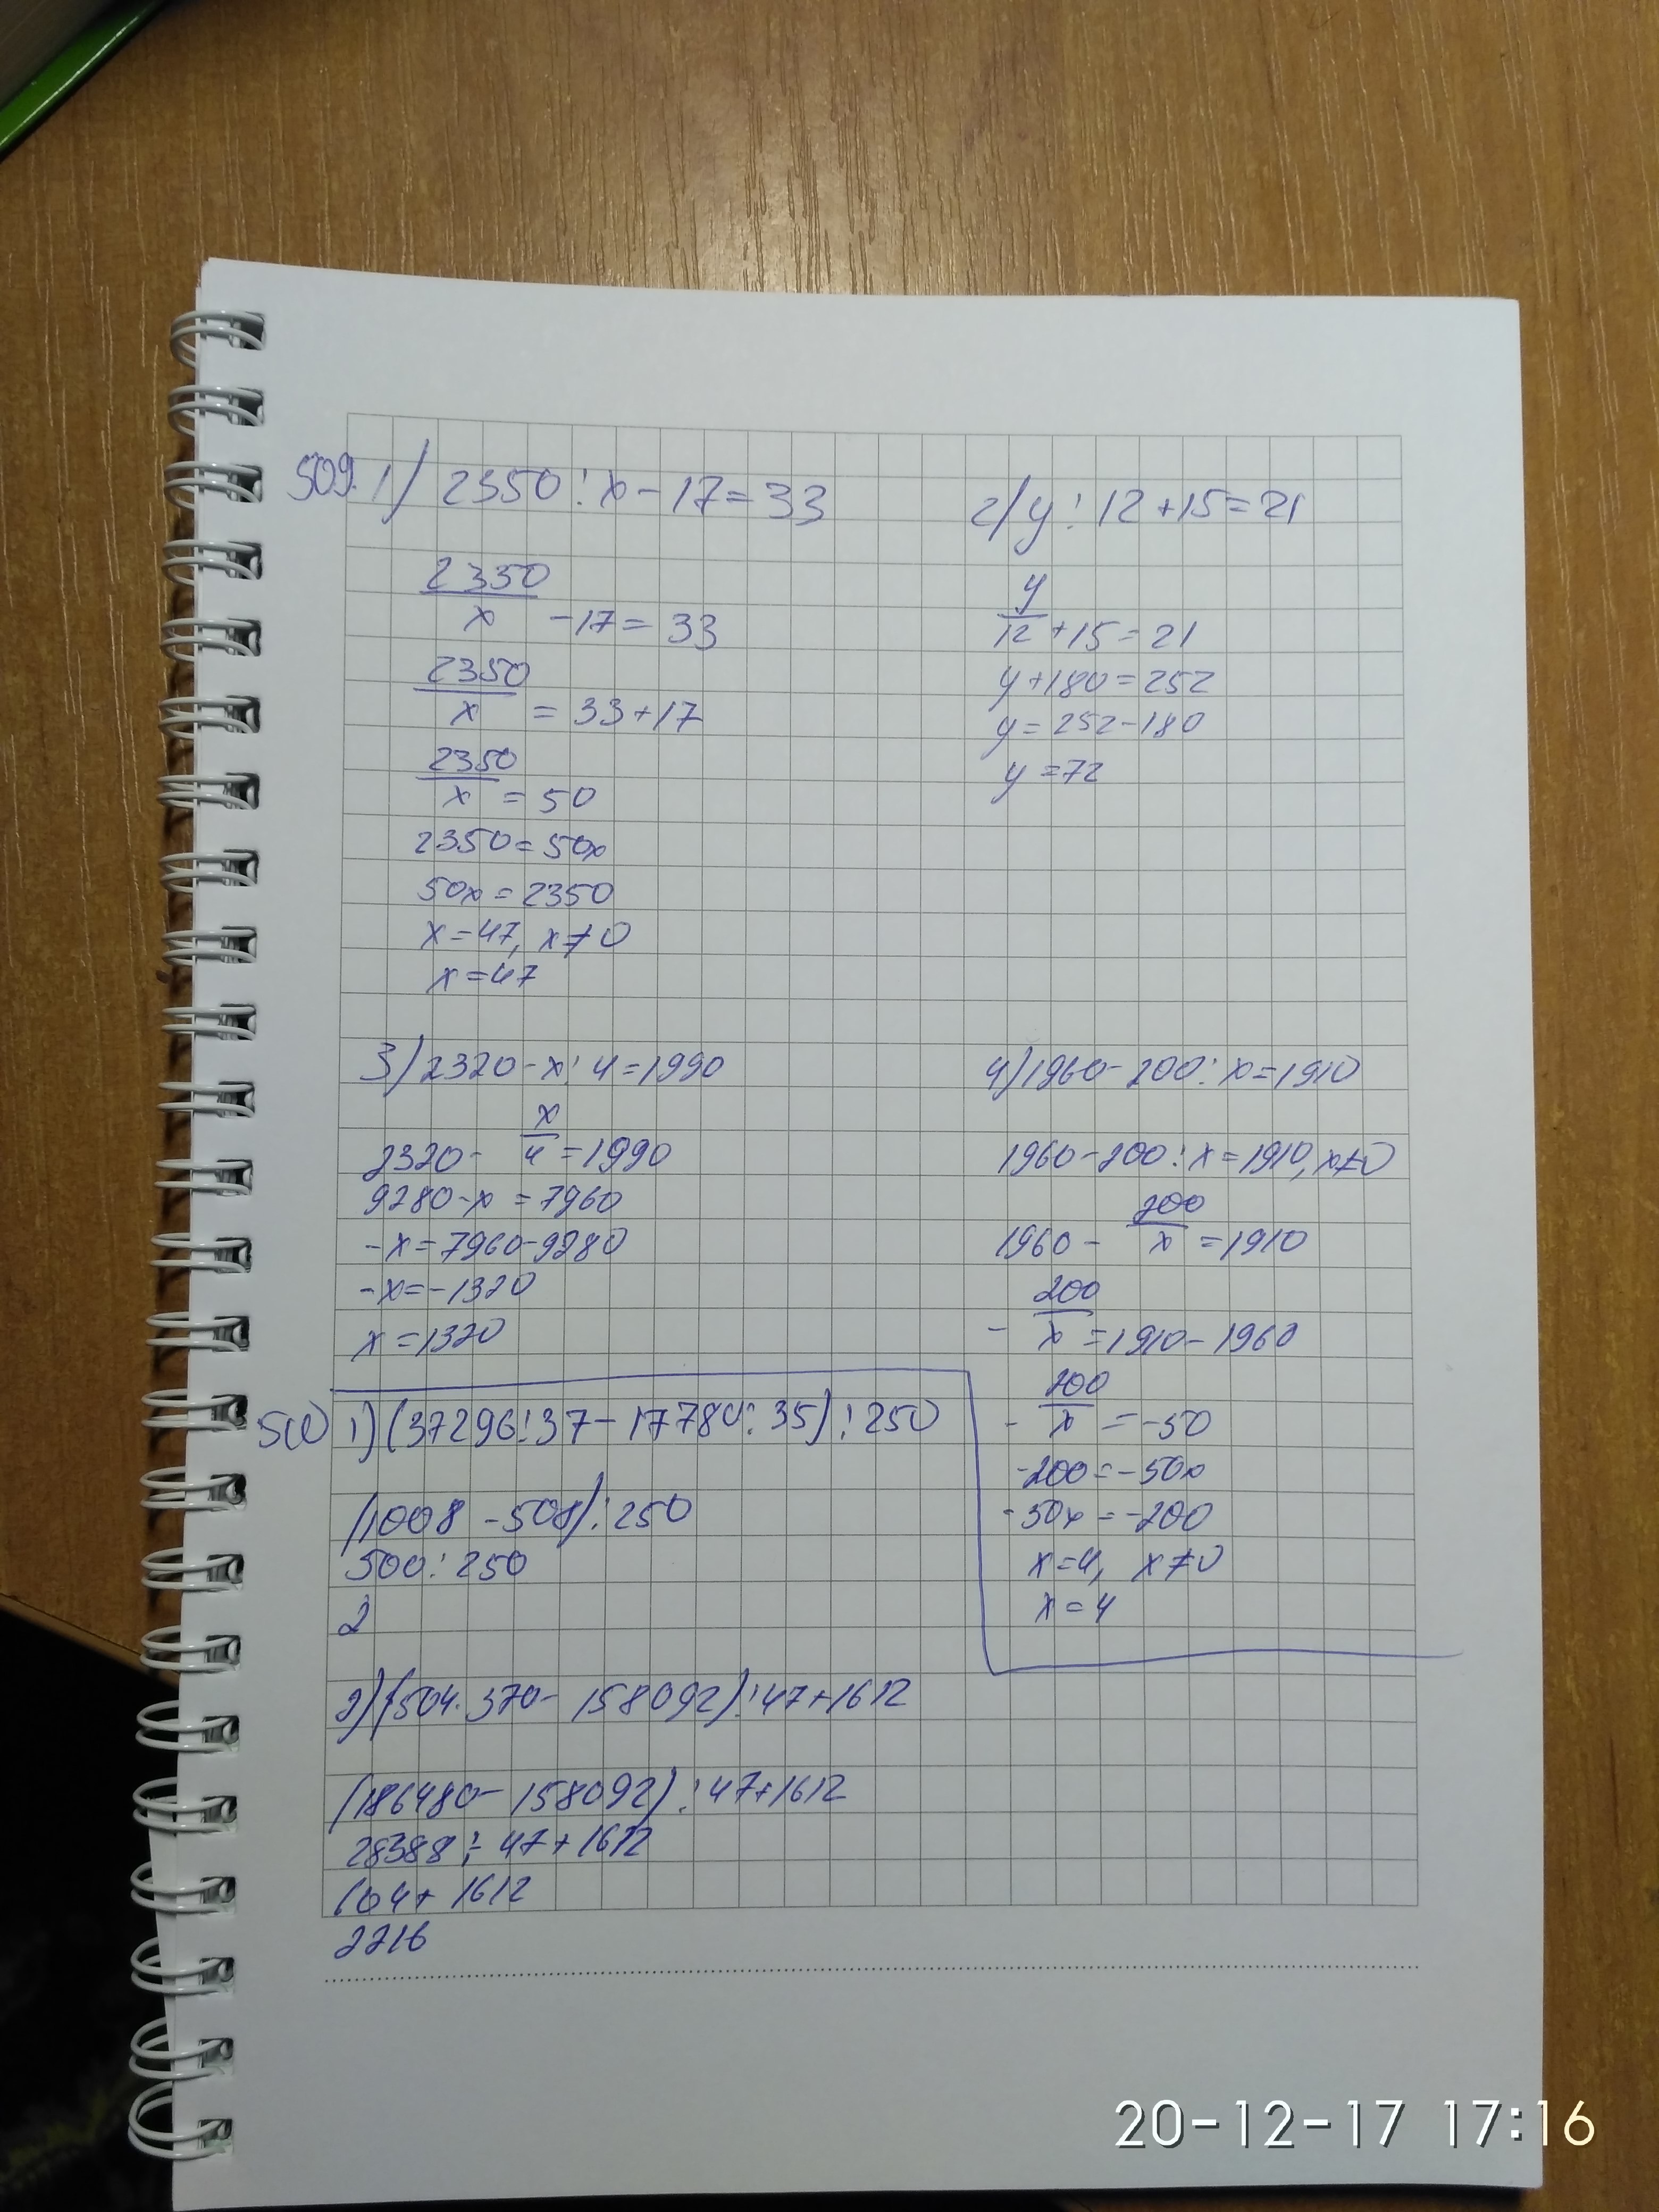 509. 1) 2350 : x - 17 = 33
2350/x - 17 = 33
2350/x = 33 + 17
2350/x = 50
2350 = 50x
50x = 2350
x = 47, x ≠ 0
x = 47
2) y : 12 + 15 = 21
y/12 + 15 = 21
y + 180 = 252
y = 252 - 180
y = 72
3) 2320 - x : 4 = 1990
2320 - x/4 = 1990
9280 - x = 7960
-x = 7960 - 9280
-x = -1320
x = 1320
4) 1960 - 200 : x = 1910
1960 - 200 : x = 1910, x ≠ 0
1960 - 200/x = 1910
- 200/x = 1910 - 1960
- 200/x = -50
-200 = -50x
-50x = -200
x = 4, x ≠ 0
x = 4
510 1) (37296 : 37 - 17780 : 35) : 250
(1008 - 508) : 250
500 : 250
2
2) (504 · 370 - 158092) : 47 + 1612
(186480 - 158092) : 47 + 1612
28388 ÷ 47 + 1612
604 + 1612
2216
20-12-17 17:16